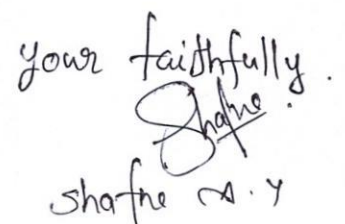 your faithfully.
Shafne.
shafne A.Y